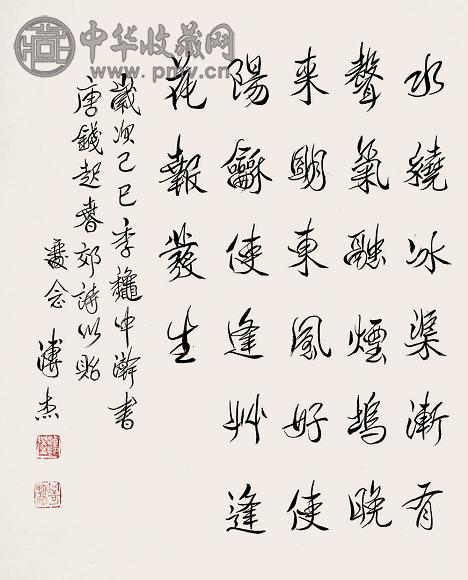 中华收藏网
水繞冰渠漸有
聲氣融煙塢晚
来朙東風好使
陽龢使逢艸逢
花報發生
歲次己巳季龝中澣書
唐錢起春郊詩以貽
念 溥杰